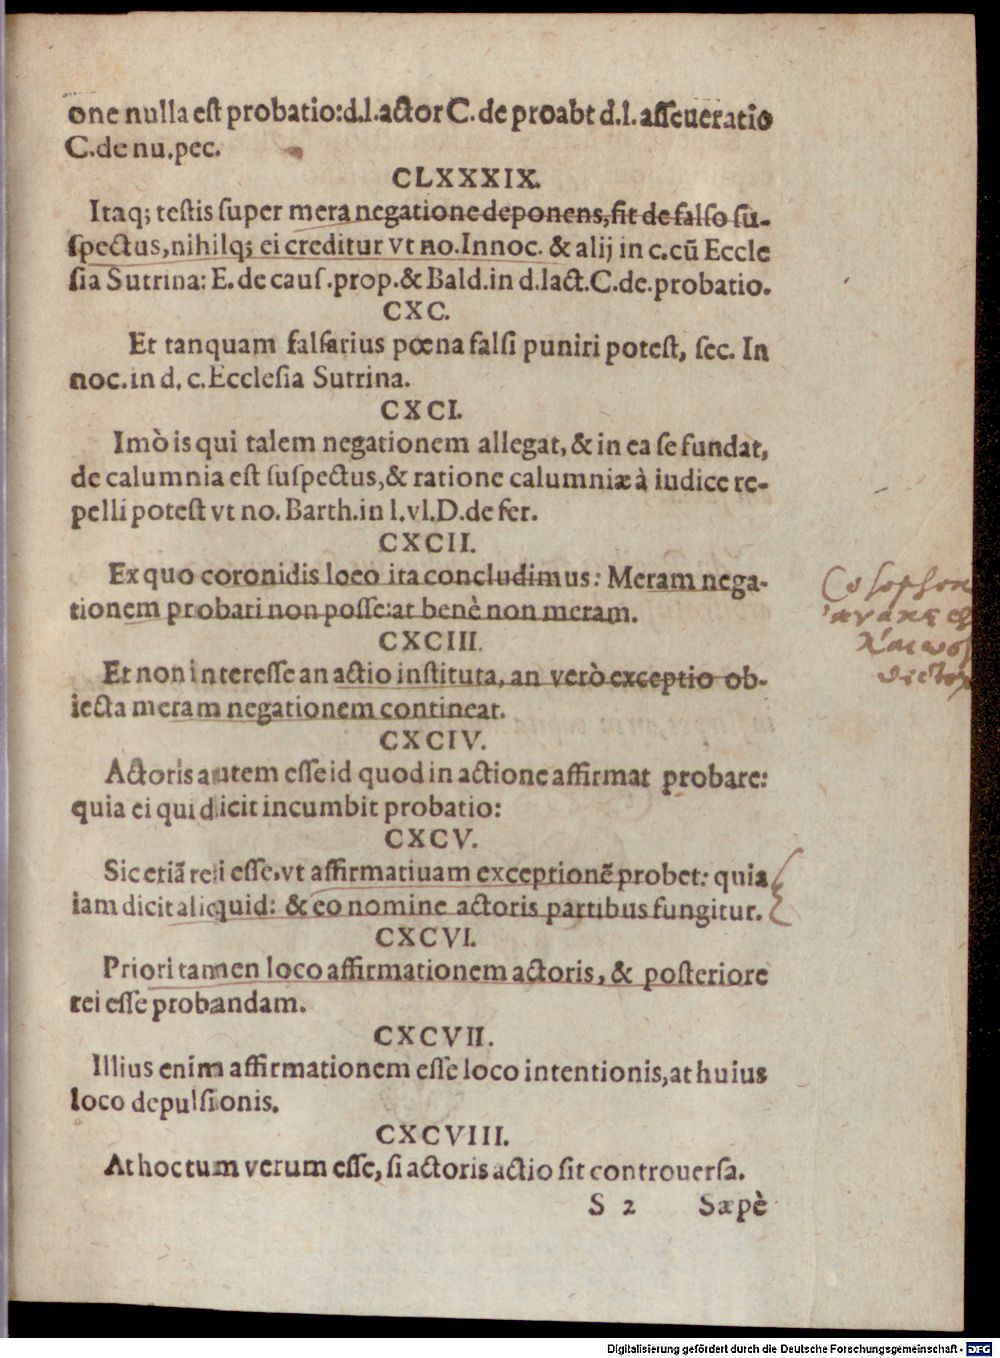 one nulla est probatio:d.l.actor C. de proabt d.l. asseueratio
C.de nu.pec.
CLXXXIX.
Itaq; testis super mera negatione deponens, fit de falso su-
spectus, nihilq; ei creditur vt no. Innoc. & alij in c.cū Eccle
sia Sutrina: E. de caus.prop.& Bald.in d.lact.C.de.probatio.
CXC.
Et tanquam falsarius pœna falsi puniri potest, sec. In
noc.in d. c.Ecclesia Sutrina.
CXCI.
Imò is qui talem negationem allegat, & in ea se fundat,
de calumnia est suspectus,& ratione calumniæ à iudice re-
pelli potest vt no. Barth.in l.vl.D.de fer.
CXCII.
Ex quo coronidis loco ita concludimus: Meram nega-
tionem probari non posse:at benè non meram.
CXCIII.
Et non interesse an actio instituta, an verò exceptio ob-
iecta meram negationem contineat.
CXCIV.
Actoris autem esse id quod in actione affirmat probare:
quia ei qui dicit incumbit probatio:
CXCV.
Sic etiā rei esse, vt affirmatiuam exceptionē probet: quia
iam dicit aliquid: & eo nomine actoris partibus fungitur.
CXCVI.
Priori tamen loco affirmationem actoris, & posteriore
rei esse probandam.
CXCVII.
Illius enim affirmationem esse loco intentionis, at huius
loco depulsionis.
CXCVIII.
At hoc tum verum esse, si actoris actio sit controuersa.
S 2 Sæpè
Digitalisierung gefördert durch die Deutsche Forschungsgemeinschaft - DFG